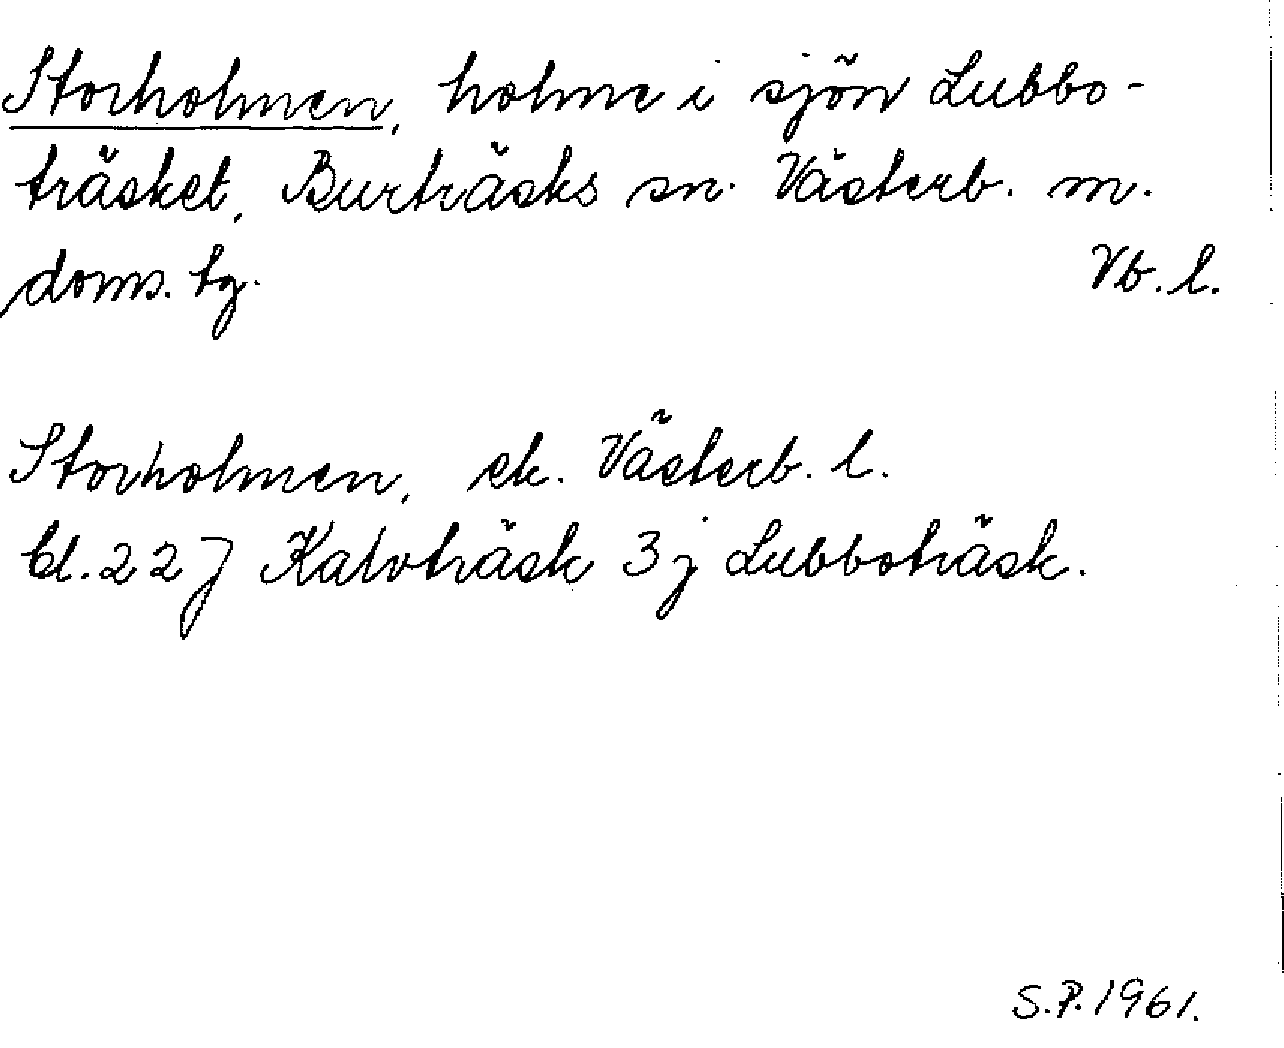 Storholmen, holme i sjön Lubbo-
träsket, Burträsks sn. Västerb. m.
doms. tg. Vb. l.
Storholmen, ek. Västerb. l.
bl. 22 J Kalvträsk 3 j Lubboträsk.
S.P. 1961.